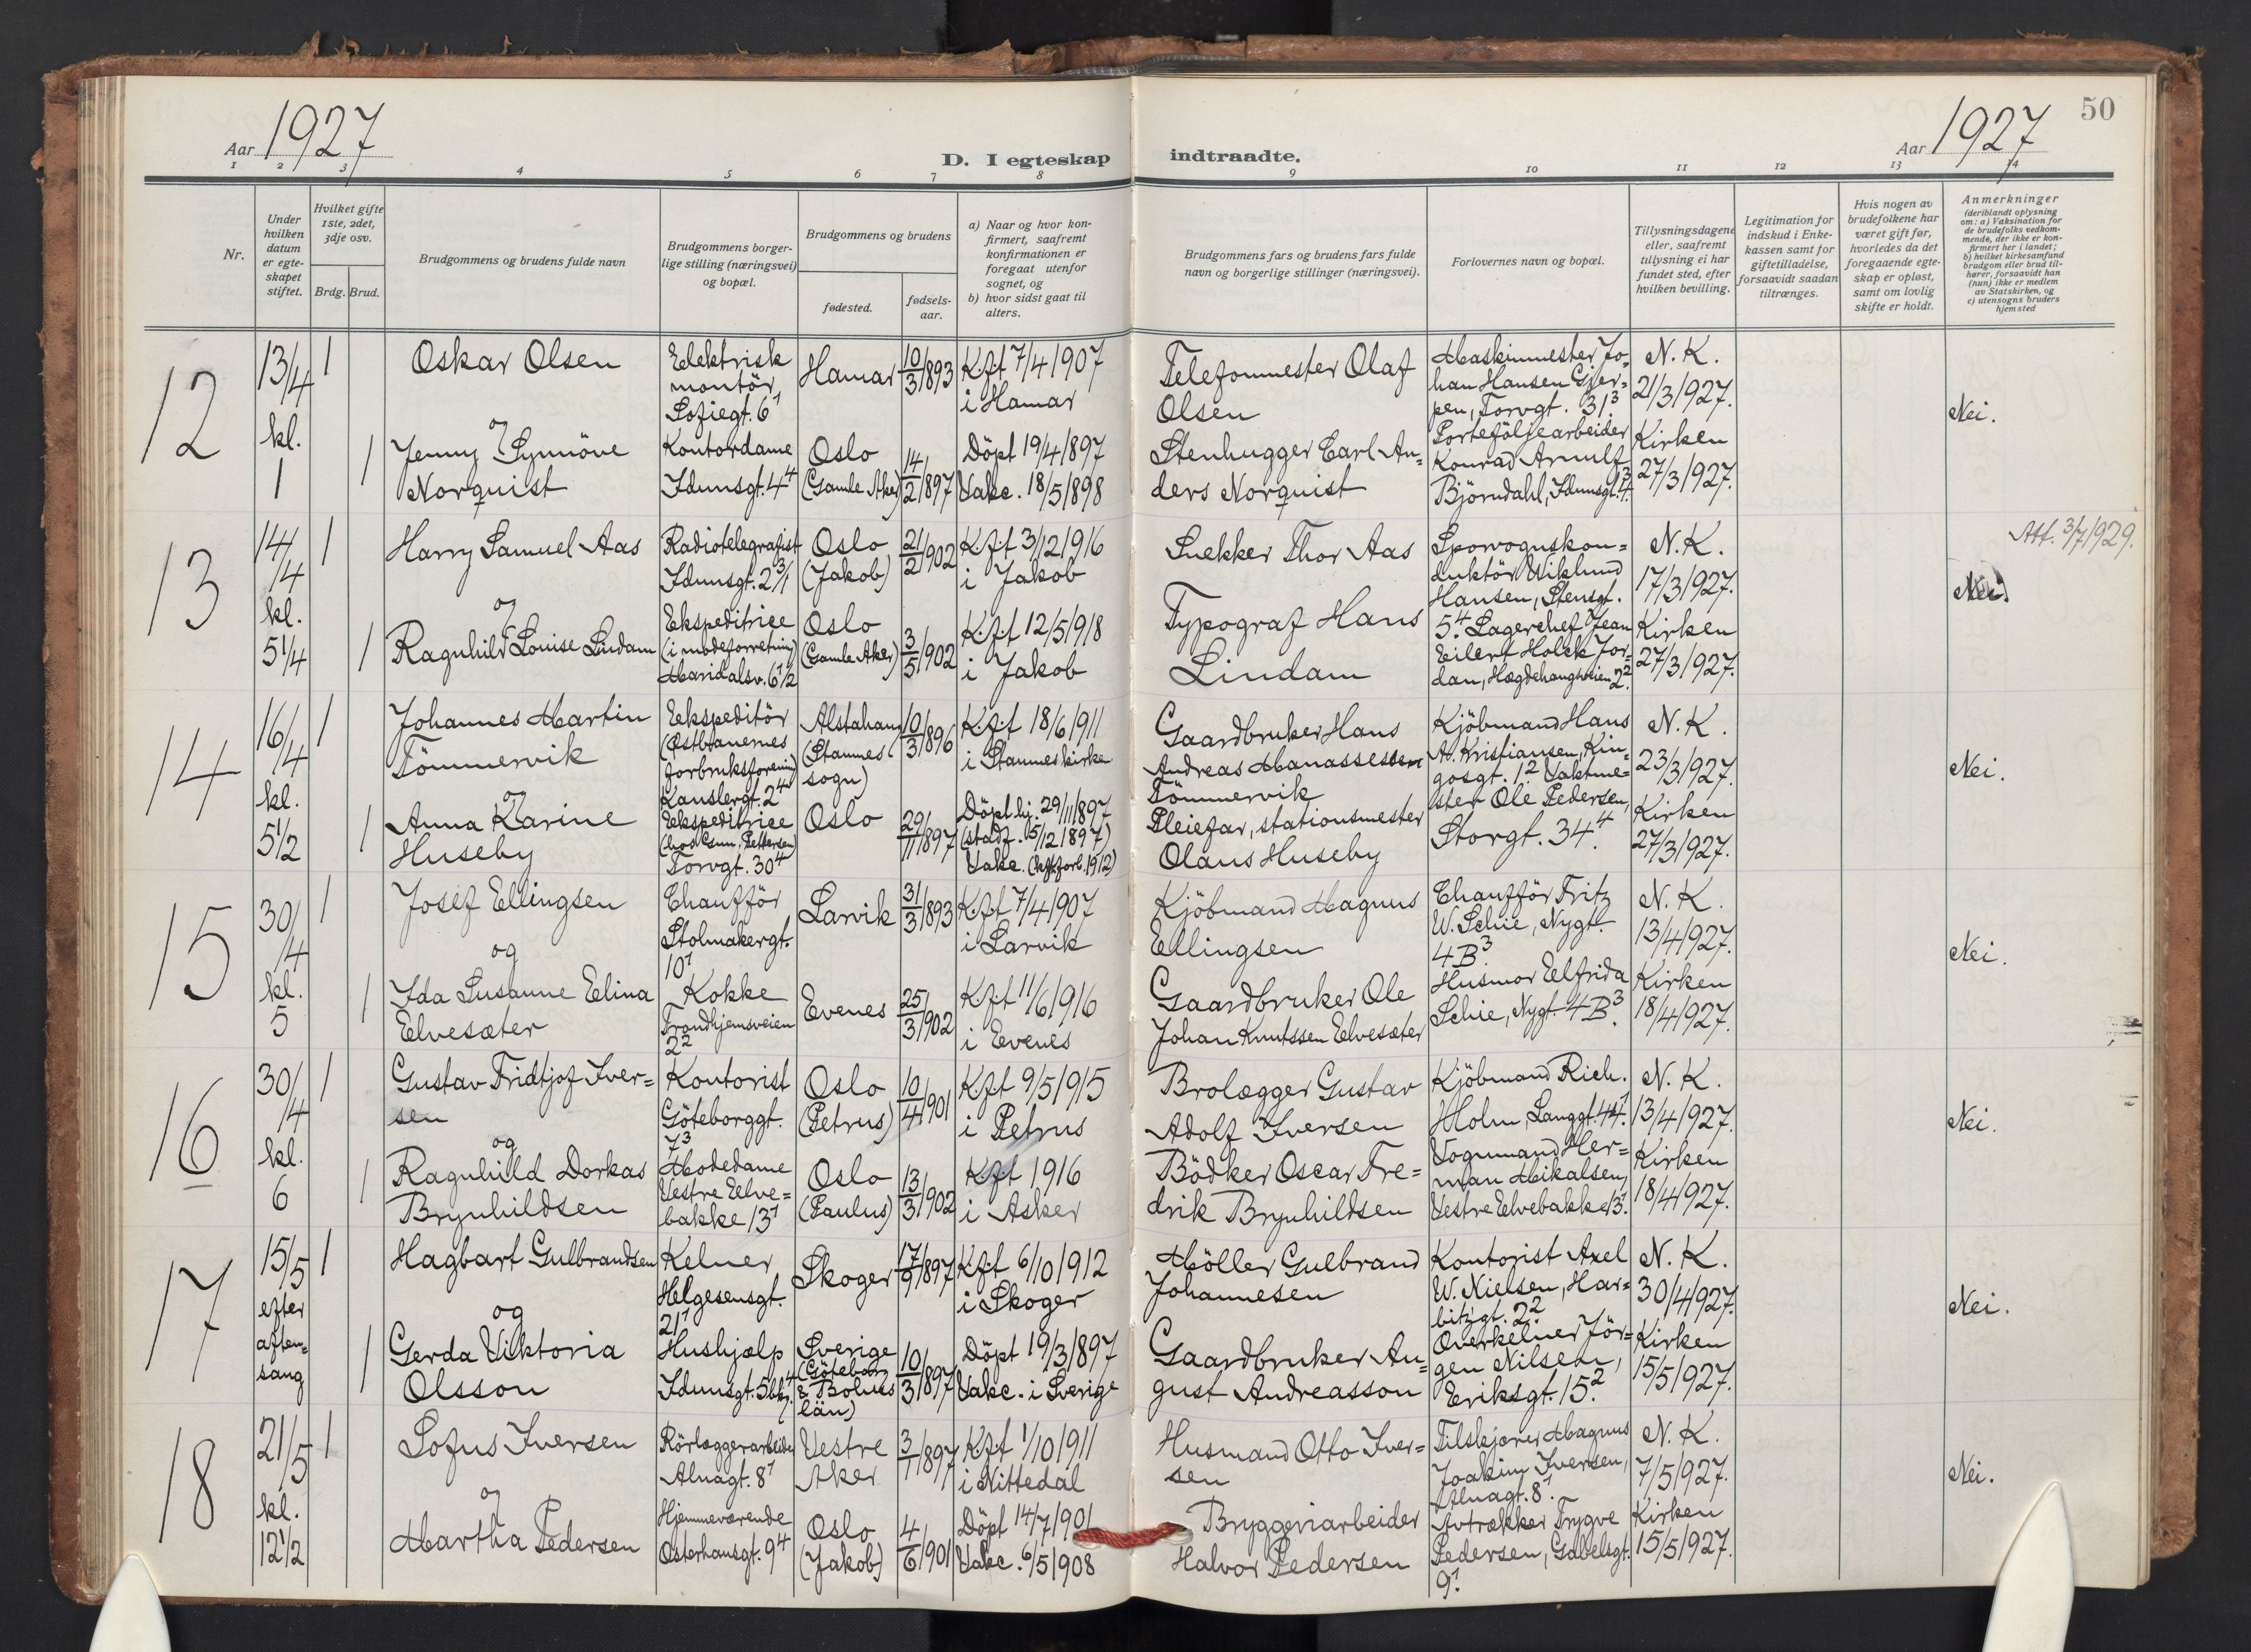 Aar 1927
D. I egteskap indtraadte.
Aar 1927
50
1 2 3 4 5 6 7 8 9 10 11 12 13 14
Nr.
Under hvilken datum er egteskapet stiftet.
Hvilket gifte 1ste, 2det, 3dje osv.
Brdg. Brud.
Brudgommens og brudens fulde navn
Brudgommens borgerlige stilling (næringsvei) og bopæl.
Brudgommens og brudens
fødested.
fødselsaar.
a) Naar og hvor konfirmert, saafremt konfirmationen er foregaat utenfor sognet, og
b) hvor sidst gaat til alters.
Brudgommens fars og brudens fars fulde navn og borgerlige stillinger (næringsvei).
Forlovernes navn og bopæl.
Tillysningsdagene eller, saafremt tillysning ei har fundet sted, efter hvilken bevilling.
Legitimation for indskud i Enkekassen samt for giftetilladelse, forsaavidt saadan tiltrænges.
Hvis nogen av brudefolkene har været gift før, hvorledes da det foregaaende egteskap er opløst, samt om lovlig skifte er holdt.
Anmerkninger
(deriblandt oplysning om: a) Vaksination for de brudefolks vedkommende, der ikke er konfirmert her i landet; b) hvilket kirkesamfund brudgom eller brud tilhører, forsaavidt han (hun) ikke er medlem av Statskirken, og c) utensogns bruders hjemsted
12
13/4 kl. 1
1
Oskar Olsen
Elektrisk montör Sofiegt. 6¹
Hamar
10/3 1893
Kft 7/4 1907 i Hamar
Telefonmester Olaf Olsen
Maskinmester Johan Hansen Gjerpen, Torvgt. 31³
N. K. 21/3 1927.
Nei.
og
1
Jenny Synnöve Norquist
Kontordame Idunsgt. 4⁴
Oslo (Gamle Aker)
14/2 1897
Döpt 19/4 1897 Vakc. 18/5 1898
Stenhugger Carl Anders Norquist
Porteföljearbeider Konrad Arnulf Björndahl, Idunsgt. 4³.
Kirken 27/3 1927.
13
14/4 kl. 5¼
1
Harry Samuel Aas
Radiotelegrafist Idunsgt. 2 3/1
Oslo (Jakob)
21/2 1902
Kft 3/12 1916 i Jakob
Snekker Thor Aas
Sporvognskonduktör Wiklund Hansen, Stensgt. 5⁴.
N. K. 17/3 1927.
Att. 3/7 1929.
Nei.
og
1
Ragnhild Louise Lindam
Ekspeditrice (i modeforretning) Maridalsv. 6 1/2
Oslo (Gamle Aker)
3/5 1902
Kft 12/5 1918 i Jakob
Typograf Hans Lindam
Lagerchef Jean Eilert Holck Jordan, Hægdehaugsveien 2².
Kirken 27/3 1927.
14
16/4 kl. 5½
1
Johannes Martin Tömmervik
Ekspeditör (Østbanernes forbruksforening) Kanslergt. 2⁴
Alstahaug (Stamnes sogn)
10/3 1896
Kft 18/6 1911 i Stamnes kirke
Gaardbruker Hans Andreas Manassesen Tömmervik
Kjöbmand Hans A. Kristiansen, Kingosgt. 1²
N. K. 23/3 1927.
Nei.
og
1
Anna Karine Huseby
Ekspeditrice (hos Gun. Pettersen) Torvgt. 30⁴
Oslo
29/11 1897
Döpt hj. 29/11 1897 (stadf. 5/12 1897) Vakc. (kft forb. 1912)
Pleiefar, stationsmester Olaus Huseby
Vaktmester Ole Pedersen, Storgt. 34⁴.
Kirken 27/3 1927.
15
30/4 kl. 5
1
Josef Ellingsen
Chaufför Stolmakergt. 10¹
Larvik
31/3 1893
Kft 7/4 1907 i Larvik
Kjöbmand Magnus Ellingsen
Chaufför Fritz W. Schie, Nygt. 4B³.
N. K. 13/4 1927.
Nei.
og
1
Ida Susanne Elina Elvesæter
Kokke Trondhjemsveien 2²
Evenes
25/3 1902
Kft 11/6 1916 i Evenes
Gaardbruker Ole Johan Knutssen Elvesæter
Husmor Elfrida Schie, Nygt. 4B³.
Kirken 18/4 1927.
16
30/4 kl. 6
1
Gustav Fridtjof Iversen
Kontorist Göteborggt. 7³
Oslo (Petrus)
10/4 1901
Kft 9/5 1915 i Petrus
Brolægger Gustav Adolf Iversen
Kjöbmand Rich. Holm, Langgt. 44¹.
N. K. 13/4 1927.
Nei.
og
1
Ragnhild Dorkas Brynhildsen
Modedame Vestre Elvebakke 13¹
Oslo (Paulus)
13/3 1902
Kft 1916 i Asker
Bödker Oscar Fredrik Brynhildsen
Vognmand Herman Mikalsen, Vestre Elvebakke 13¹.
Kirken 18/4 1927.
17
15/5 efter aftensang
1
Hagbart Gulbrandsen
Kelner Helgesensgt. 21¹
Skoger
17/9 1897
Kft 6/10 1912 i Skoger
Möller Gulbrand Johannesen
Kontorist Axel W. Nielsen, Harbitzgt. 2².
N. K. 30/4 1927.
Nei.
og
1
Gerda Viktoria Olsson
Hushjælp Idunsgt. 5
Sverige (Göteborg & Bohus län)
10/3 1897
Döpt 19/3 1897 Vakc. i Sverige
Gaardbruker August Andreasson
Overkelner Jörgen Nilsen, Eriksgt. 15².
Kirken 15/5 1927.
18
21/5 kl. 12½
1
Sofus Iversen
Rörlæggerarbeider Alnagt. 8¹
Vestre Aker
3/1 1897
Kft 1/10 1911 i Nittedal
Husmand Otto Iversen
Tilskjærer Magnus Joakim Iversen, Alnagt. 8¹.
N. K. 7/5 1927.
Nei.
og
Martha Pedersen
Hjemmeværende Osterhausgt. 9⁴
Oslo (Jakob)
4/6 1901
Döpt 14/7 1901 Vakc. 6/5 1908
Bryggeriarbeider Halvor Pedersen
Avtrækker Trygve Pedersen, Gabelsgt. 9¹.
Kirken 15/5 1927.